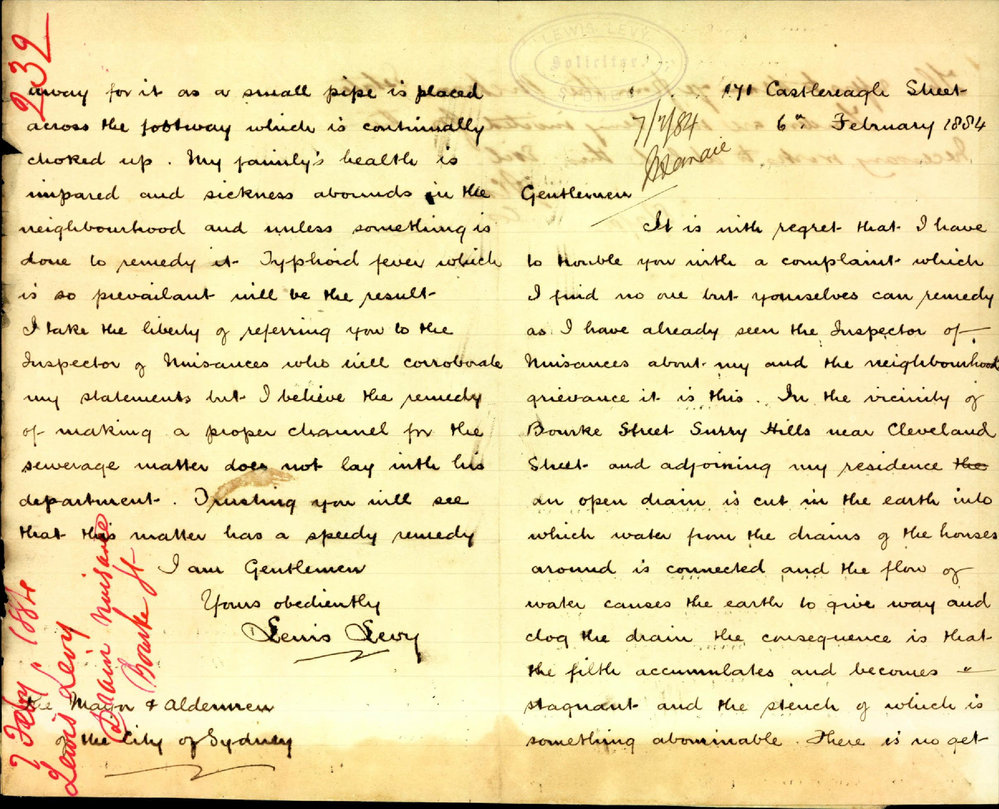 LEWIS LEVY
Solicitor
171 Castlereagh Street
6th February 1884
7/2/84
Gentlemen
It is with regret that I have
to trouble you with a complaint which
I find no one but yourselves can remedy
as I have already seen the Inspector of
Nuisances about my and the neighbourhood
grievance it is this. In the vicinity of
Bourke Street Surry Hills near Cleveland
Street and adjoining my residence the
an open drain is cut in the earth into
which water from the drains of the houses
around is connected and the flow of
water causes the earth to give way and
clog the drain the consequence is that
the filth accumulates and becomes
stagnant and the stench of which is
something abominable. There is no get
away for it as a small pipe is placed
across the footway which is continually
choked up. My family's health is
impared and sickness abounds in the
neighbourhood and unless something is
done to remedy it Typhoid fever which
is so prevailant will be the result
I take the liberty of referring you to the
Inspector of Nuisances who will corroborate
my statements but I believe the remedy
of making a proper channel for the
sewerage matter does not lay with his
department. Trusting you will see
that this matter has a speedy remedy
I am Gentlemen
Yours obediently
Lewis Levy
the Mayor & Aldermen
of the City of Sydney
232
7 Feby 1884
Lewis Levy
Drain Nuisance
Bourke St